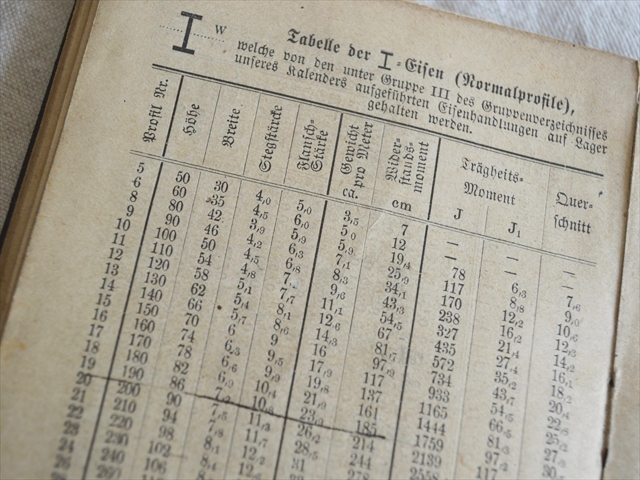 I w
Tabelle der I-Eisen (Normalprofile),
welche von den unter Gruppe III des Gruppenverzeichnisses
unseres Kalenders aufgeführten Eisenhandlungen auf Lager
gehalten werden.
Profil Nr. Höhe Breite Stegstärke Flansch-Stärke Gewicht pro Meter ca. Wider-stands-moment cm Trägheits-Moment J J₁ Quer-schnitt
5 50 30 4,0 5,0 3,5 7 — — —
6 60 35 4,5 6,0 5,0 12 — — —
8 80 42 3,9 5,9 5,9 19,4 78 6,3 7,6
9 90 46 4,2 6,3 7,1 25,9 117 8,8 9,0
10 100 50 4,5 6,8 8,3 34,1 170 12,2 10,6
11 110 54 4,8 7,2 9,6 43,3 238 16,2 12,3
12 120 58 5,1 7,7 11,1 54,5 327 21,4 14,2
13 130 62 5,4 8,1 12,6 67 435 27,4 16,1
14 140 66 5,7 8,6 14,3 81,7 572 35,2 18,2
15 150 70 6 9 16 97,9 734 43,7 20,4
16 160 74 6,3 9,5 17,9 117 933 54,5 22,8
17 170 78 6,6 9,9 19,8 137 1165 66,5 25,2
18 180 82 6,9 10,4 21,9 161 1444 81,3 27,9
19 190 86 7,2 10,8 23,9 185 1759 97,2
20 200 90 7,5 11,3 26,2 214 2139 117
21 210 94 7,8 11,7 28,5 244 2558
22 220 98 8,1 12,2 31 278
23 230 102 8,4
24 240 106